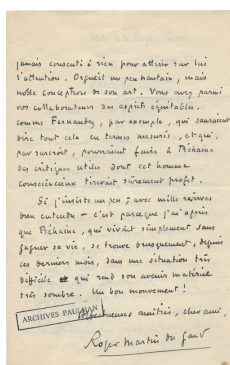 jamais consenti à rien pour attirer sur lui
l'attention. Orgueil un peu hautain, mais
noble conception de son art. Vous avez parmi
vos collaborateurs des esprits équitables,
comme Fernandez, par exemple, qui sauraient
dire tout cela en termes mesurés, et qui,
par surcroît, pourraient faire à Béhaine
des critiques utiles dont cet homme
consciencieux tirerait sûrement profit.
Si j'insiste un peu, avec mille réserves
bien entendu – c'est parce que j'ai appris
que Béhaine, qui vivait simplement sans
gagner sa vie, se trouve brusquement, depuis
ces derniers mois, dans une situation très
difficile et qui rend son avenir matériel
très sombre. Un bon mouvement !
ARCHIVES PAULHAN
amitiés, cher ami,
Roger Martin du Gard